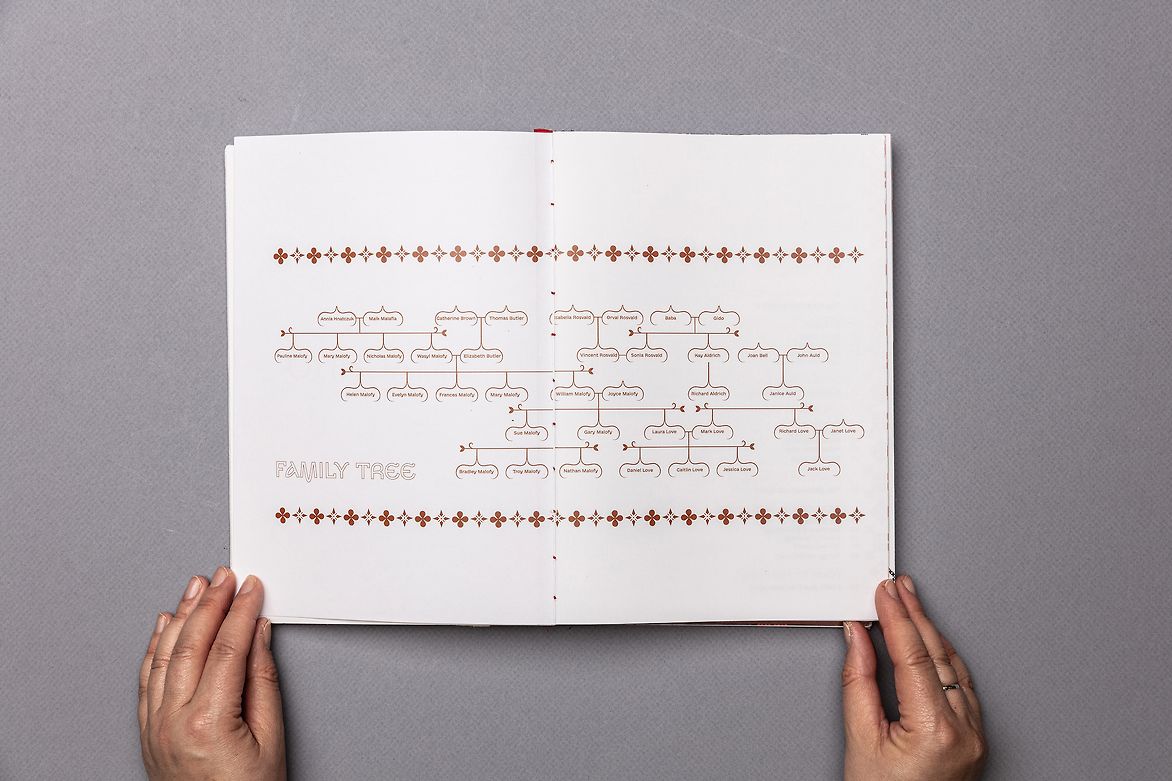 Annia Hnatczuk Maik Malafia Catherine Brown Thomas Butler Isabella Rosvald Orval Rosvald Baba Gido
Pauline Malofy Mary Malofy Nicholas Malofy Wasyl Malofy Elizabeth Butler Vincent Rosvald Sonia Rosvald Kay Aldrich Joan Bell John Auld
Helen Malofy Evelyn Malofy Frances Malofy Mary Malofy William Malofy Joyce Malofy Richard Aldrich Janice Auld
Sue Malofy Gary Malofy Laura Love Mark Love Richard Love Janet Love
Bradley Malofy Troy Malofy Nathan Malofy Daniel Love Caitlin Love Jessica Love Jack Love
FAMILY TREE